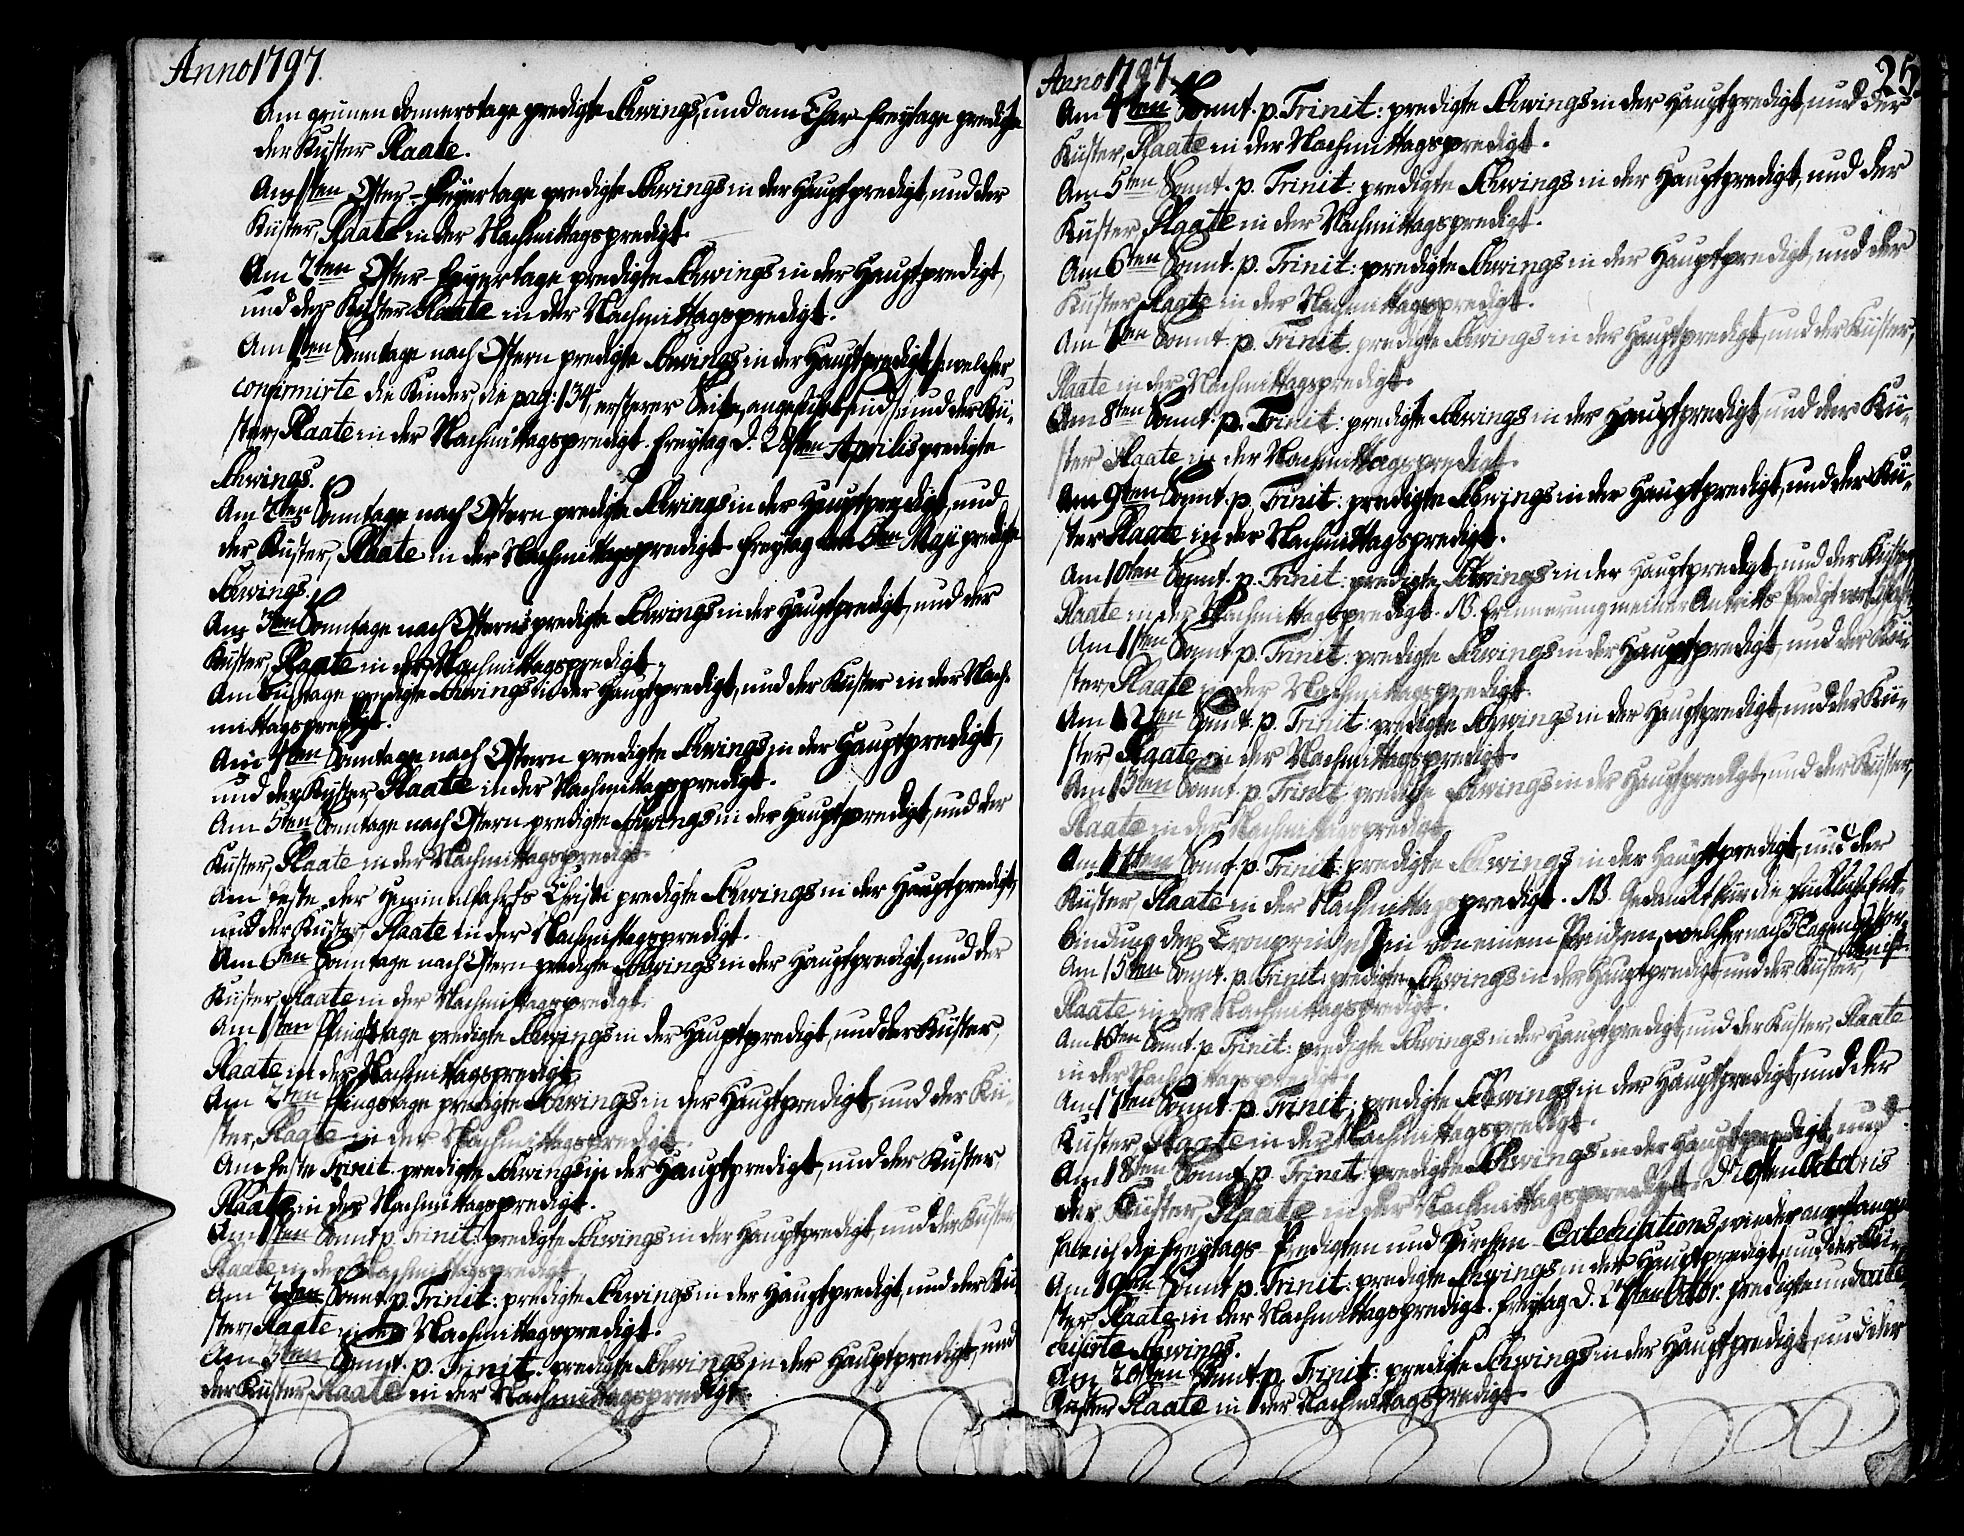 Anno 1797.
Am grünen Donnerstage predigte Schwings, und am Char-freytage predigte
der Küster Plaate.
Am 1sten Oster-feyertage predigte Schwings in der Hauptpredigt, und der
Küster, Plaate in der Nachmittagspredigt.
Am 2ten Oster-feyertage predigte Schwings in der Hauptpredigt,
und der Küster Plaate in der Nachmittagspredigt.
Am 1sten Sonntage nach Ostern predigte Schwings in der Hauptpredigt /: welcher
confirmirte die Kinder, die pag: 134, ersterer Seite, angeführt sind :/ und der Kü-
ster, Plaate in der Nachmittagspredigt. Freytag d. 28sten Aprilis predigte
Schwings.
Am 2ten Sonntage nach Ostern predigte Schwings in der Hauptpredigt, und
der Küster, Plaate in der Nachmittagspredigt. Freytag den 5ten Maji predigte
Schwings.
Am 3ten Sonntage nach Ostern predigte Schwings in der Hauptpredigt, und der
Küster, Plaate in der Nachmittagspredigt.
Am Bustage predigte Schwings in der Hauptpredigt, und der Küster in der Nach-
mittagspredigt.
Am 4ten Sonntage nach Ostern predigte Schwings in der Hauptpredigt,
und der Küster, Plaate in der Nachmittagspredigt.
Am 5ten Sonntage nach Ostern predigte Schwings in der Hauptpredigt, und der
Küster, Plaate in der Nachmittagspredigt.
Am Feste der Himmelfahrts Christi predigte Schwings in der Hauptpredigt,
und der Küster, Plaate in der Nachmittagspredigt.
Am 6ten Sonntage nach Ostern predigte Schwings in der Hauptpredigt, und der
Küster, Plaate in der Nachmittagspredigt.
Am 1sten Pfingsttage predigte Schwings in der Hauptpredigt, und der Küster,
Plaate in der Nachmittagspredigt.
Am 2ten Pfingstage predigte Schwings in der Hauptpredigt, und der Kü-
ster, Plaate in der Nachmittagspredigt.
Am Feste Trinit. predigte Schwings in der Hauptpredigt, und der Küster
Plaate in der Nachmittagspredigt.
Am 1sten Sonnt. p. Trinit: predigte Schwings in der Hauptpredigt, und der Küster
Plaate in der Nachmittagspredigt.
Am 2ten Sonnt. p. Trinit: predigte Schwings in der Hauptpredigt, und der Kü-
ster, Plaate in der Nachmittagspredigt.
Am 3ten Sonnt. p. Trinit. predigte Schwings in der Hauptpredigt, und
der Küster, Plaate in der Nachmittagspredigt.
Anno 1797. 25.
Am 4ten Sonnt. p. Trinit: predigte Schwings in der Hauptpredigt, und der
Küster, Plaate in der Nachmittagspredigt.
Am 5ten Sonnt. p. Trinit: predigte Schwings in der Hauptpredigt, und der
Küster, Plaate in der Nachmittagspredigt.
Am 6ten Sonnt. p. Trinit: predigte Schwings in der Hauptpredigt, und der
Küster, Plaate in der Nachmittagspredigt.
Am 7ten Sonnt. p. Trinit. predigte Schwings in der Hauptpredigt, und der Küster,
Plaate in der Nachmittagspredigt.
Am 8ten Sonnt. p. Trinit: predigte Schwings in der Hauptpredigt, und der Kü-
ster Plaate in der Nachmittagspredigt.
Am 9ten Sonnt. p. Trinit: predigte Schwings in der Hauptpredigt, und der Kü-
ster Plaate in der Nachmittagspredigt.
Am 10ten Sonnt. p. Trinit: predigte Schwings in der Hauptpredigt, und der Küster,
Plaate in der Nachmittagspredigt. NB. Erinnerung meiner Antritts Predigt
Am 11ten Sonnt. p. Trinit: predigte Schwings in der Hauptpredigt, und der Kü-
ster, Plaate in der Nachmittagspredigt.
Am 12ten Sonnt. p. Trinit: predigte Schwings in der Hauptpredigt, und der Kü-
ster, Plaate in der Nachmittagspredigt.
Am 13ten Sonnt. p. Trinit. predigte Schwings in der Hauptpredigt, und der Küster,
Plaate in der Nachmittagspredigt.
Am 14ten Sonnt. p. Trinit: predigte Schwings in der Hauptpredigt, und der
Küster, Plaate in der Nachmittagspredigt. NB. Gedanckt für die glückliche Ent-
bindung der Cronprinzessin von einem Prinzen, welcher nach 8 Tagen gestor-
ben ist.
Am 15ten Sonnt. p. Trinit: predigte Schwings in der Hauptpredigt und der Küster,
Plaate in der Nachmittagspredigt.
Am 16ten Sonnt. p. Trinit: predigte Schwings in der Hauptpredigt, und der Küster, Plaate
in der Nachmittagspredigt.
Am 17ten Sonnt. p. Trinit: predigte Schwings in der Hauptpredigt, und der
Küster Plaate in der Nachmittagspredigt.
Am 18ten Sonnt. p. Trinit. predigte Schwings in der Hauptpredigt, und
der Küster, Plaate in der Nachmittagspredigt. Octobris
habe ich die Freytags-Predigten und Kirchen-Catechisations, wieder angefangen
Am 19ten Sonnt. p. Trinit: predigte Schwings in der Hauptpredigt, und der Kü-
ster, Plaate in der Nachmittagspredigt. Freytag d. 27sten Octbr. predigte und cate-
chisirte Schwings.
Am 20sten Sonnt. p. Trinit: predigte Schwings in der Hauptpredigt, und der
Küster Plaate in der Nachmittagspredigt.